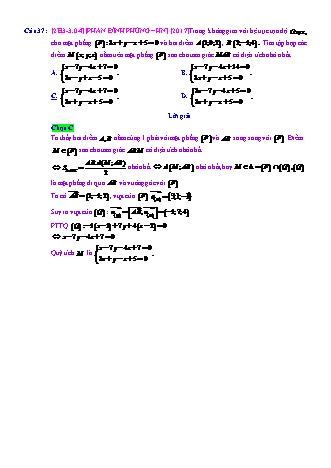 Câu 37: [2H3-3.0-4] [PHAN ĐÌNH PHÙNG – HN] [2017] Trong không gian với hệ trục tọa độ Oxyz,
cho mặt phẳng (P): 3x + y - x + 5 = 0 và hai điểm A(1;0;2), B(2;-1;4). Tìm tập hợp các
điểm M(x;y;z) nằm trên mặt phẳng (P) sao cho tam giác MAB có diện tích nhỏ nhất.
A. { x - 7y - 4z + 7 = 0 B. { x - 7y - 4z + 14 = 0
3x - y + z - 5 = 0 . 3x + y - z + 5 = 0 .
C. { x - 7y - 4z + 7 = 0 D. { 3x - 7y - 4z + 5 = 0
3x + y - z + 5 = 0 . 3x + y - z + 5 = 0 .
Lời giải
Chọn C
Ta thấy hai điểm A, B nằm cùng 1 phía với mặt phẳng (P) và AB song song với (P). Điểm
M ∈ (P) sao cho tam giác ABM có diện tích nhỏ nhất
nhỏ nhất ⇔ d(M; AB) nhỏ nhất, hay M ∈ Δ = (P) ∩ (Q), (Q)
là mặt phẳng đi qua AB và vuông góc với (P)
Ta có AB = (1;-1;2), vtpt của (P)
Suy ra vtpt của (Q):
PTTQ (Q):
⇔ x - 7y - 4z + 7 = 0
Quỹ tích M là { x - 7y - 4z + 7 = 0
3x + y - z + 5 = 0 .